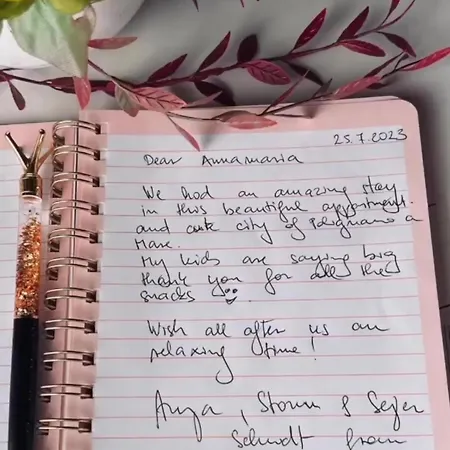 25.7.2023
Dear Annamaria
We had an amazing stay
in this beautiful appartment.
and cute city of Polignano a
Mare.
My kids are saying big
thank you for all the
snacks
Wish all after us an
relaxing time!
Anja, Storm &
Schmidt from